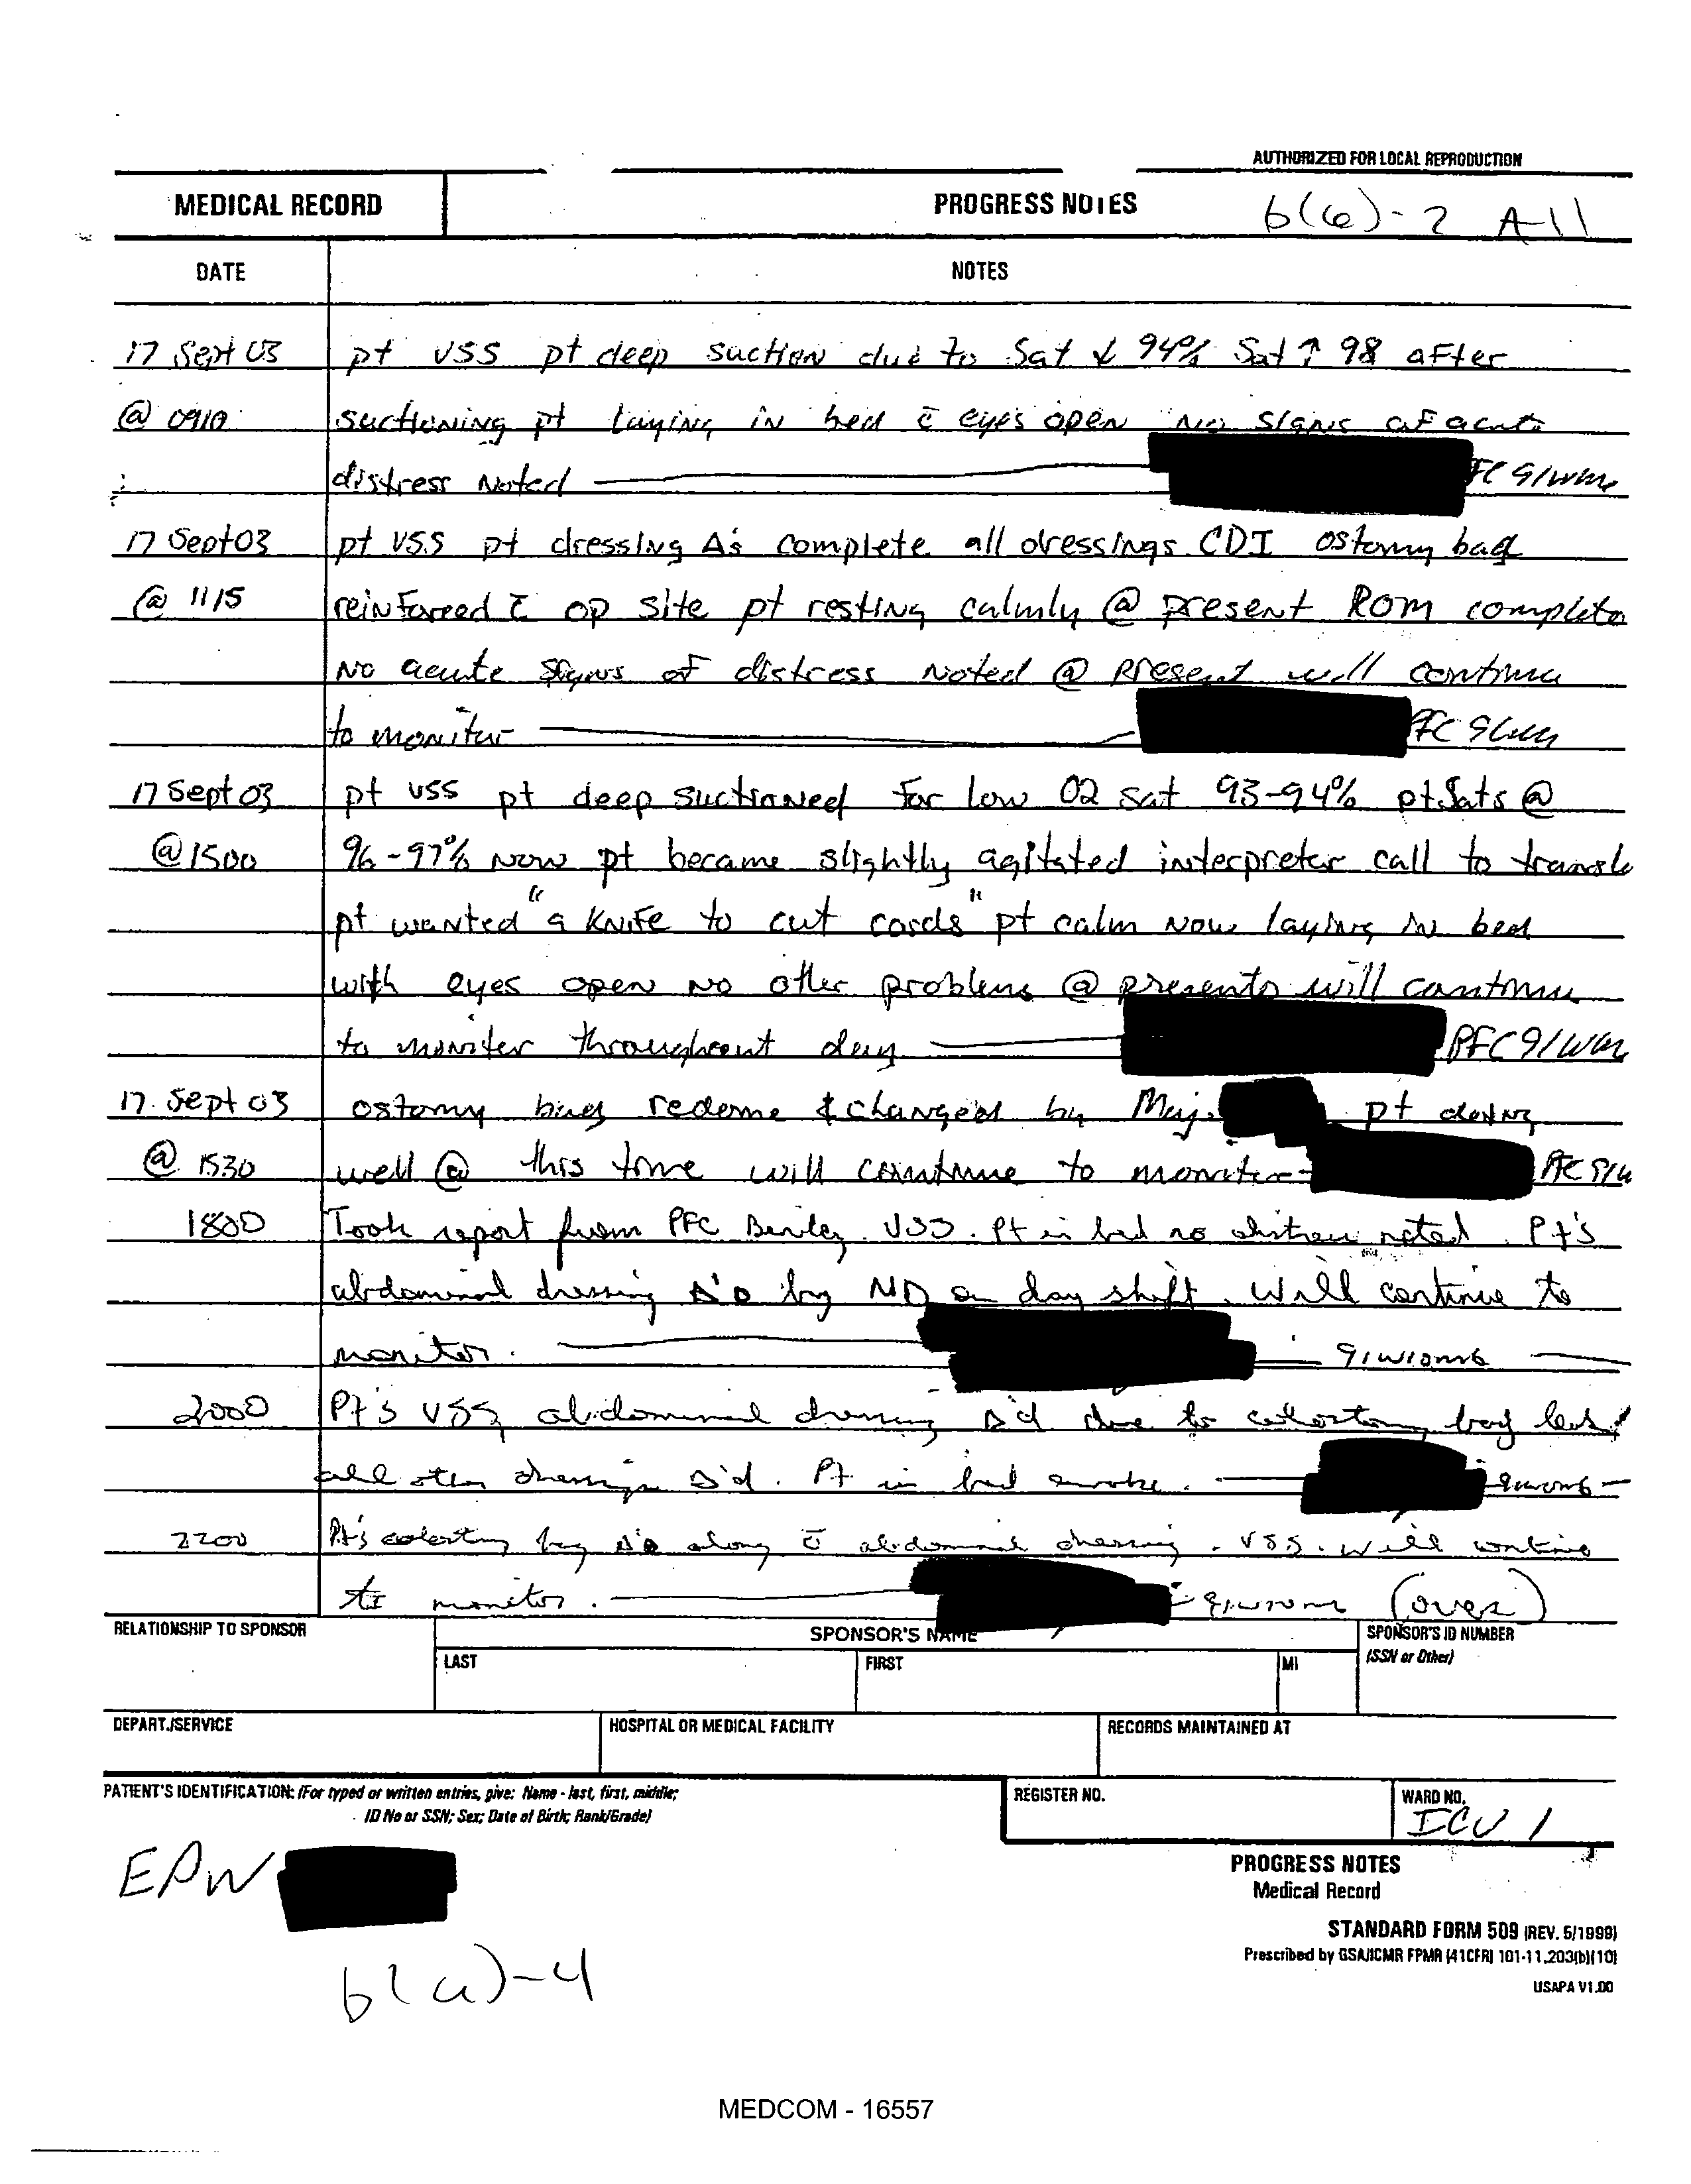 AUTHORIZED FOR LOCAL REPRODUCTION
MEDICAL RECORD
PROGRESS NOTES
b(6)-2 All
DATE
NOTES
17 Sept 03 pt VSS pt deep suction due to Sat ↓ 94% Sat ↑ 98 after
@ 0910 suctioning pt laying in bed c̄ eyes open No signs of acute
distress noted
17 Sept 03 pt VSS pt dressing Δs complete all dressings CDI ostomy bag
@ 1115 reinforced c̄ op site pt resting calmly @ present ROM complete
No acute signs of distress noted @ present will continue
to monitor PFC
17 Sept 03 pt VSS pt deep suctioned for low O2 sat 93-94% pt Sats @
@ 1500 96-97% now pt became slightly agitated interpreter call to
pt wanted "a knife to cut cords" pt calm now laying in bed
with eyes open no other problems @ presents will continue
to moniter throughout day PFC 91W
17 Sept 03 ostomy bag redone & changed by Maj. pt doing
@ 1530 well @ this time will continue to moniter
1800 Took report from PFC VSS. Pt in bed no distress noted. Pt's
abdominal dressing Δ'd by MD on day shift. Will continue to
monitor.
2000 Pt's VSS, abdominal dressing Δ'd due to bag
all other dressings Δ'd. Pt in bed awake.
2200 Pt's bag Δ'd along c̄ abdominal dressing. VSS. Will continue
to monitor. (over)
RELATIONSHIP TO SPONSOR
SPONSOR'S NAME
SPONSOR'S ID NUMBER
(SSN or Other)
LAST
FIRST
MI
DEPART./SERVICE
HOSPITAL OR MEDICAL FACILITY
RECORDS MAINTAINED AT
PATIENT'S IDENTIFICATION: (For typed or written entries, give: Name - last, first, middle;
ID No or SSN; Sex; Date of Birth; Rank/Grade)
REGISTER NO.
WARD NO.
ICU 1
EPW
b(6)-4
PROGRESS NOTES
Medical Record
STANDARD FORM 509 (REV. 5/1999)
Prescribed by GSA/ICMR FPMR (41CFR) 101-11.203(b)(10)
USAPA V1.00
MEDCOM - 16557